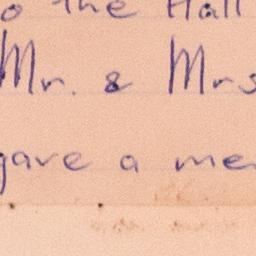 o the Hall
Mr. & Mrs
gave a me